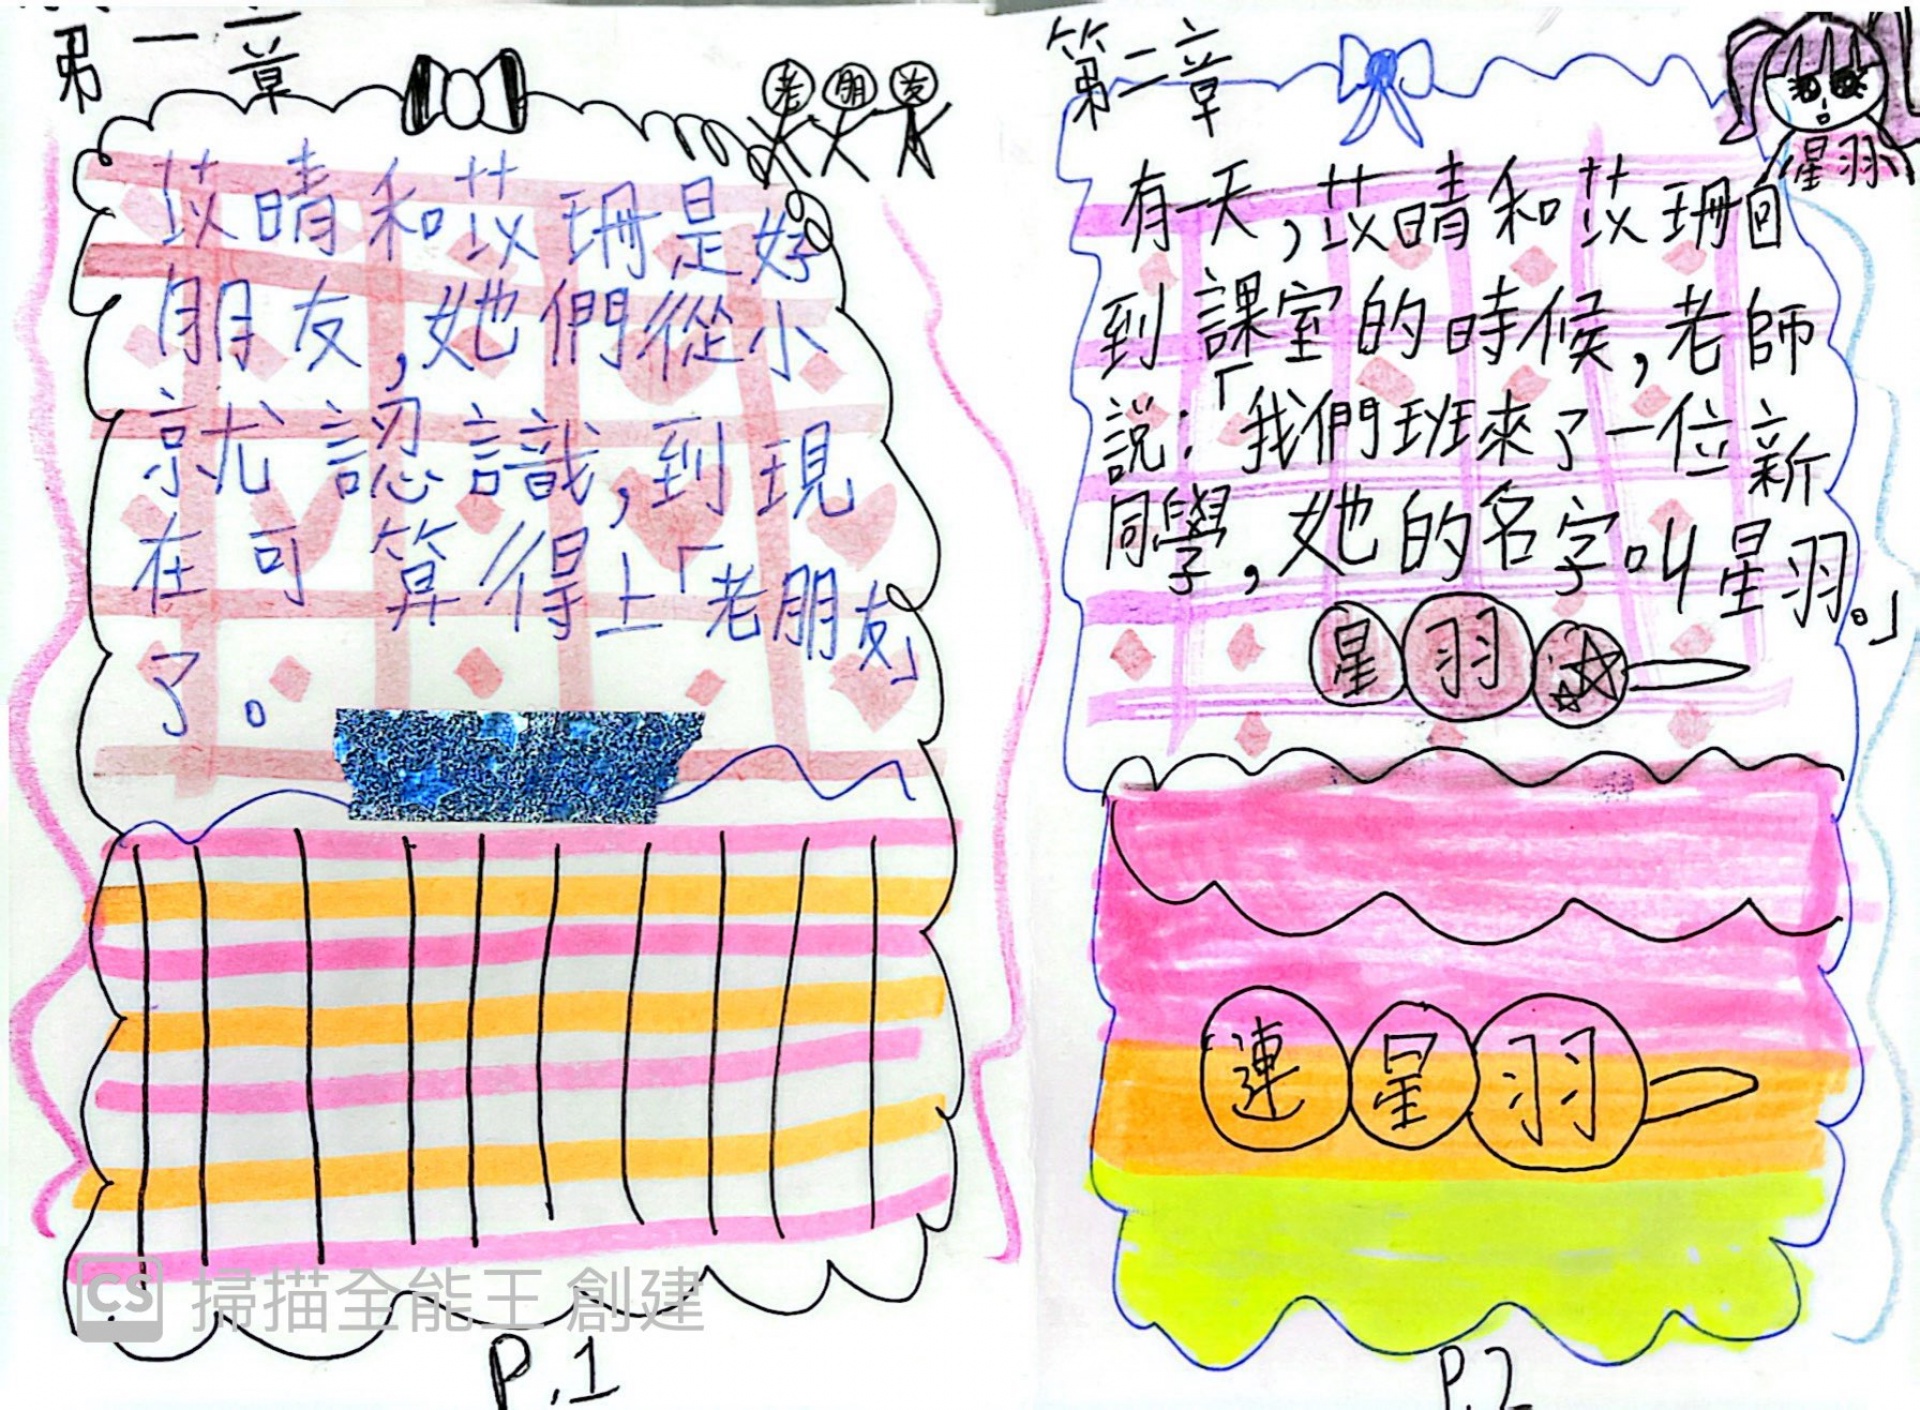 第一章
老朋友
苡晴和苡珊是好
朋友,她們從小
就認識,到現
在可算得上「老朋友」
了。
P.1
第二章
星羽
有一天,苡晴和苡珊回
到課室的時候,老師
說:「我們班來了一位新
同學,她的名字叫星羽。」
星羽
連星羽
P.2
CS 掃描全能王 創建